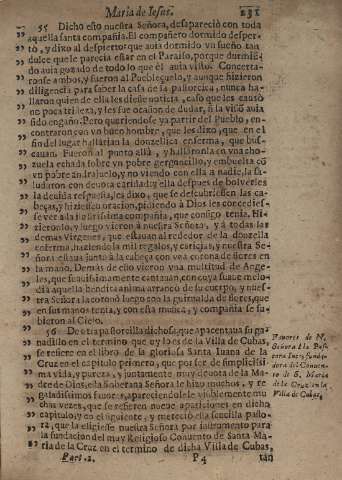 Maria de Iesus. 231
55 Dicho esto nuestra Señora, desapareciò con toda
aquella santa compañia. El compañero dormido desper-
tò, y dixo al despierto que auia dormido vn sueño tan
dulce que le parecia estar en el Paraiso, porque durmie-
do auia gozado de todo lo que el auia visto. Concerta-
ronse ambos, y fueron al Pueblezuelo, y aunque hizieron
diligencia para saber la casa de la pastorcica, nunca ha-
llaron quien de ella les diesse noticia, caso que les causò
no poca tristeza, y les fue ocasion de dudar, si la visió auia
sido engaño. Pero queriendose ya partir del Pueblo, en-
contraron con vn buen hombre, que les dixo, que en el
fin del lugar hallarian la donzellica enferma, que bus-
cauan. Fueron al punto allà, y hallaronla en vna cho-
zuela echada sobre vn pobre gergoncillo, y embuelta cõ
vn pobre andrajuelo, y no viendo con ella a nadie, la sa-
ludaron con deuota caridad; y ella despues de bolverles
la deuida respuesta, les dixo, que se descubriessen las ca-
beças, y hiziessen oracion, pidiendo à Dios les concedies-
se ver a la compañia, que consigo tenia. Hi-
zieronlo, y luego vieron à nuestra Señora, y à todas las
demas Virgenes, que estauan al rededor de la donzella
enferma haziendo la mil regalos, y caricias, y nuestra Se-
ñora estaua junto à la cabeça con vna corona de flores en
la mano. Demàs de esto vieron vna multitud de Ange-
les, que suauissimamente cantauan, con cuya suaue melo-
dia aquella bendita anima arrancò de su cuerpo, y nues-
tra Señora la coronò luego con la guirnalda de flores, que
en sus manos tenia, y con esta musica, y compañia se su-
bieron al Cielo.
56 De otra pastorcilla dichosa, que apacentaua su ga-
nadillo en el termino que oy lo es de la Villa de Cubas,
se refiere en el libro de la gloriosa Santa Iuana de la
Cruz en el capitulo primero, que por ser de simplicissi-
ma vida, y pureza, y juntamente muy deuota de la Ma-
dre de Dios, ella Soberana Señora le hizo muchos, y re-
galadissimos fauores, apareciendole visiblemente mu-
chas vezes, que se refieren nueue apariciones en dicho
capitulo, y en el siguiente, y mereciò esta senzilla pasto-
ra, que la eligiesse nuestra Señora por instrumento para
la fundacion del muy Religioso Conuento de Santa Ma-
ria de la Cruz en el termino de dicha Villa de Cubas,
Fauores de N.
Señora à la Pas-
tora Ines, funda-
dora del Conuen-
to de S. Maria
de la Cruz en la
Villa de Cubas.
Part. 2. P 4 tan